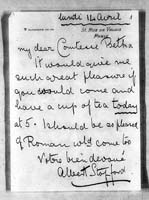 lundi 14 avril
my dear Comtesse Betka
It would give me
such great pleasure if
you would come and
have a cup of tea today
at 5. I should be so pleased
if Roman wld come too
Votre bien dévoué
Albert Stopford